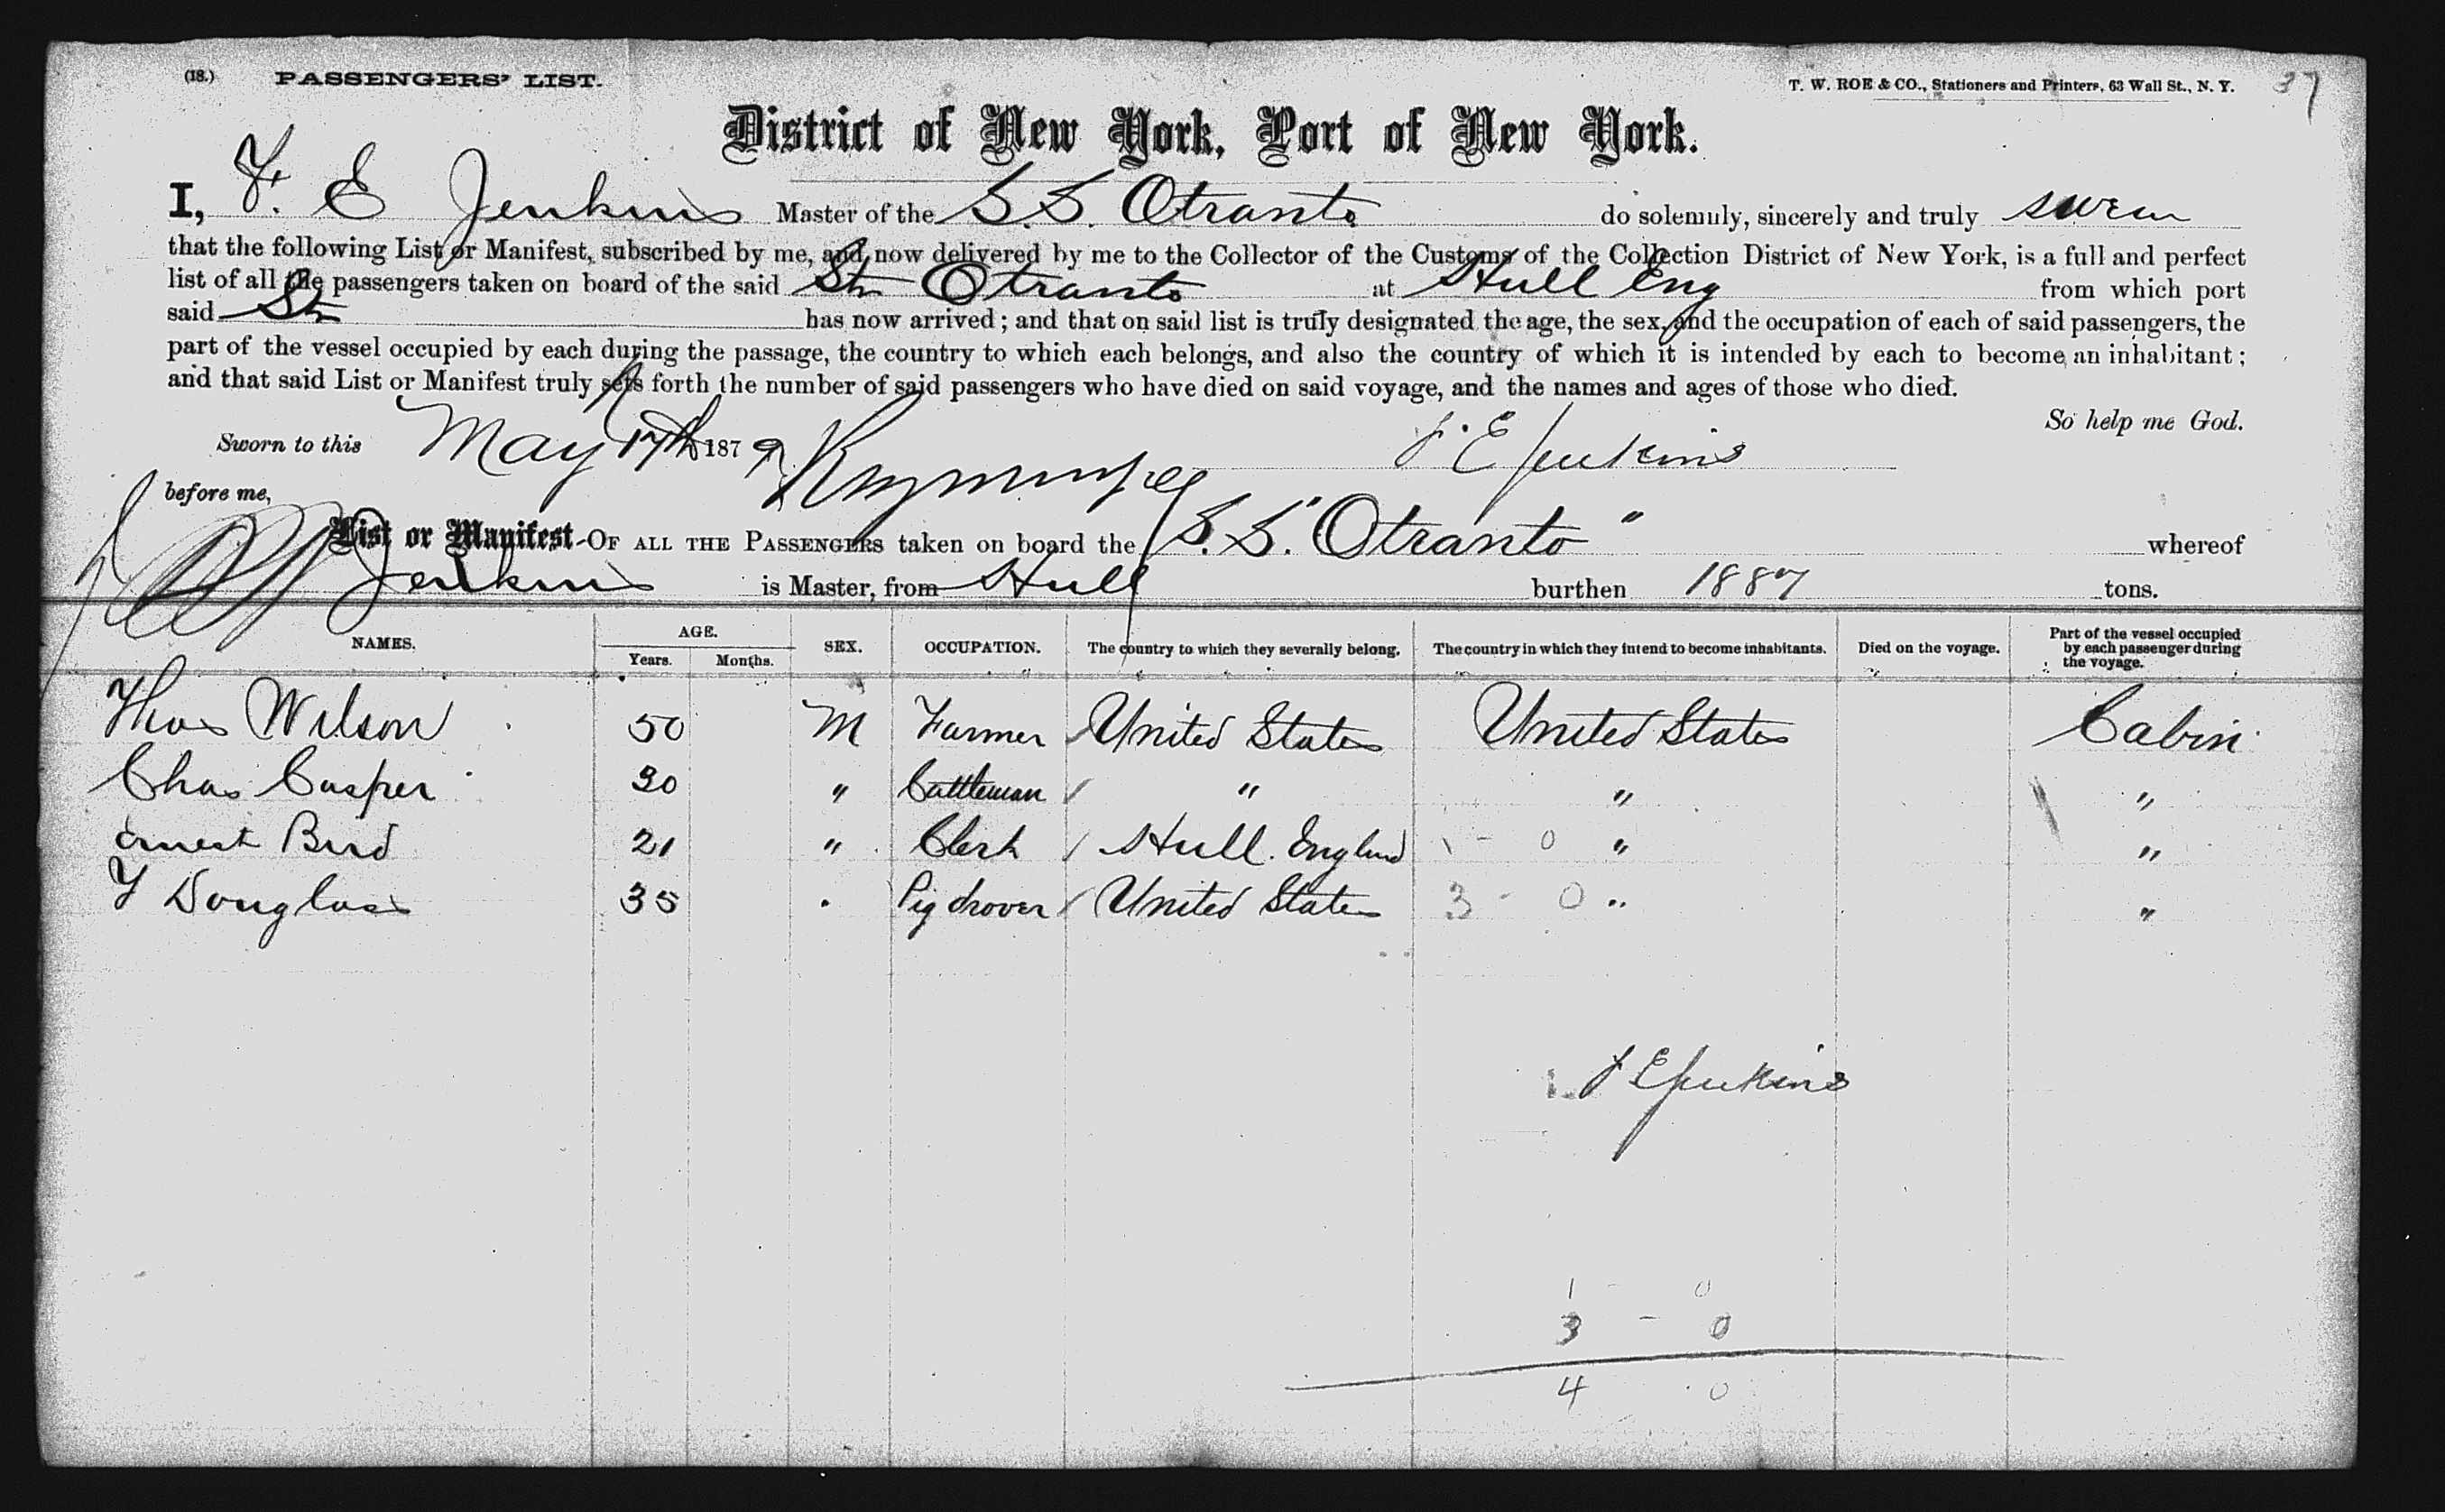 (18.) PASSENGERS' LIST. T. W. ROE & CO., Stationers and Printers, 63 Wall St., N. Y. 37
District of New York, Port of New York.
I, F. E Jenkins Master of the S.S. Otranto do solemnly, sincerely and truly swear
that the following List or Manifest, subscribed by me, and now delivered by me to the Collector of the Customs of the Collection District of New York, is a full and perfect
list of all the passengers taken on board of the said Str Otranto at Hull Eng from which port
said Str has now arrived; and that on said list is truly designated the age, the sex, and the occupation of each of said passengers, the
part of the vessel occupied by each during the passage, the country to which each belongs, and also the country of which it is intended by each to become an inhabitant;
and that said List or Manifest truly sets forth the number of said passengers who have died on said voyage, and the names and ages of those who died.
So help me God.
Sworn to this May 17th 1879 F. E Jenkins
before me,
List or Manifest OF ALL THE PASSENGERS taken on board the S.S. "Otranto" whereof
Jenkins is Master, from Hull burthen 1887 tons.
NAMES. AGE. Years. Months. SEX. OCCUPATION. The country to which they severally belong. The country in which they intend to become inhabitants. Died on the voyage. Part of the vessel occupied by each passenger during the voyage.
Thos Wilson 50 M Farmer United States United States Cabin
Chas Casper 30 " Cattleman " " "
Ernest Bird 21 " Clerk Hull. England 1 - 0 " "
Y Douglass 35 " Pig drover United States 3 - 0 " "
F E Jenkins
1 - 0
3 - 0
4 0